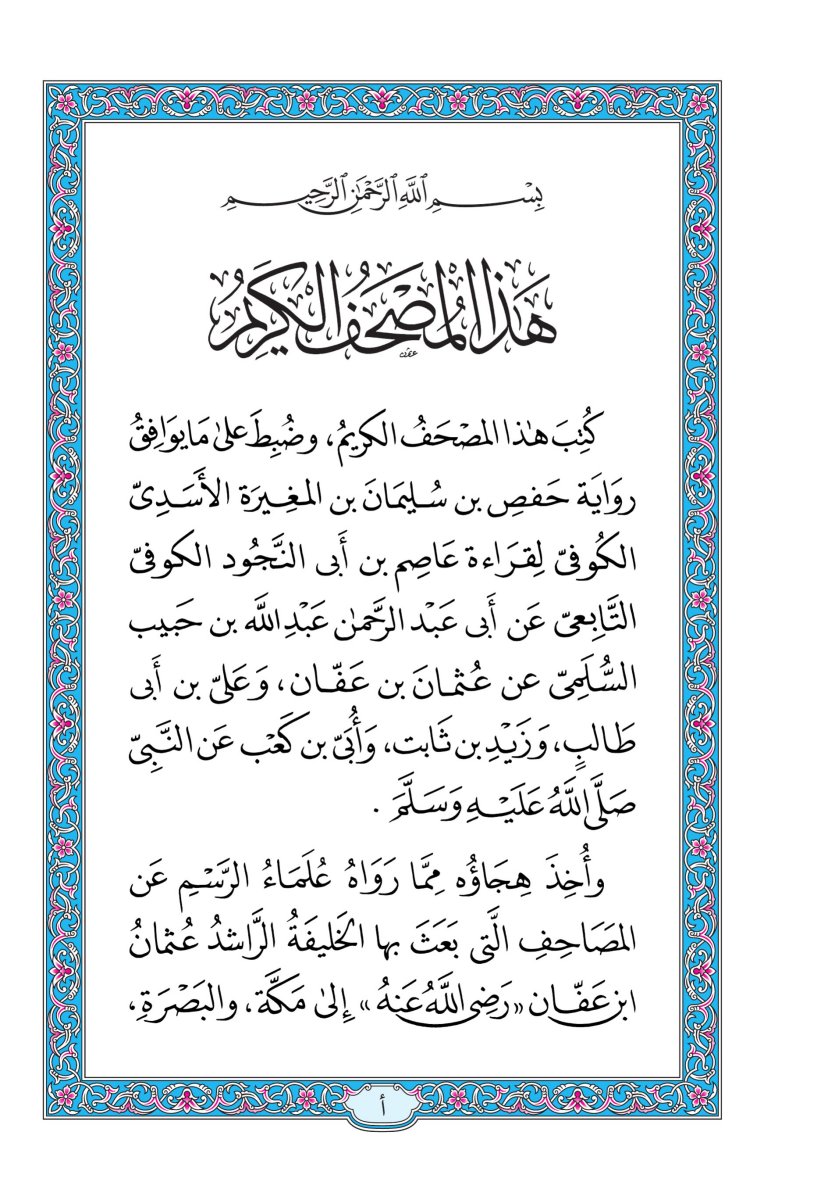 بِسْمِ ٱللَّهِ ٱلرَّحْمَٰنِ ٱلرَّحِيمِ
هَٰذَا الْمُصْحَفُ الْكَرِيمُ
كُتِبَ هٰذا المصْحَفُ الكريمُ، وضُبِطَ علىٰ مَا يوَافِقُ
روَايَة حَفصِ بن سُليمَانَ بن المغِيرَة الأَسَدِىّ
الكُوفىّ لِقرَاءة عَاصِم بن أَبى النَّجُود الكوفىّ
التَّابِعىّ عَن أَبى عَبْد الرَّحمٰن عَبْدِ اللَّه بن حَبيب
السُّلَمِىّ عن عُثمانَ بن عَفّان، وَعَلىّ بن أَبى
طَالبٍ، وَزَيْدِ بن ثَابت، وَأُبَىّ بن كَعْب عَن النَّبِىّ
صَلَّى اللَّهُ عَلَيْهِ وَسَلَّمَ .
وأُخِذَ هِجَاؤُه مِمَّا رَوَاهُ عُلَمَاءُ الرَّسْمِ عَن
المصَاحِفِ الَّتى بَعَثَ بها الخَليفَةُ الرَّاشدُ عُثمانُ
ابن عَفّان «رَضِىَ اللَّهُ عَنهُ» إِلىٰ مَكَّة، والبَصْرَةِ،
أ